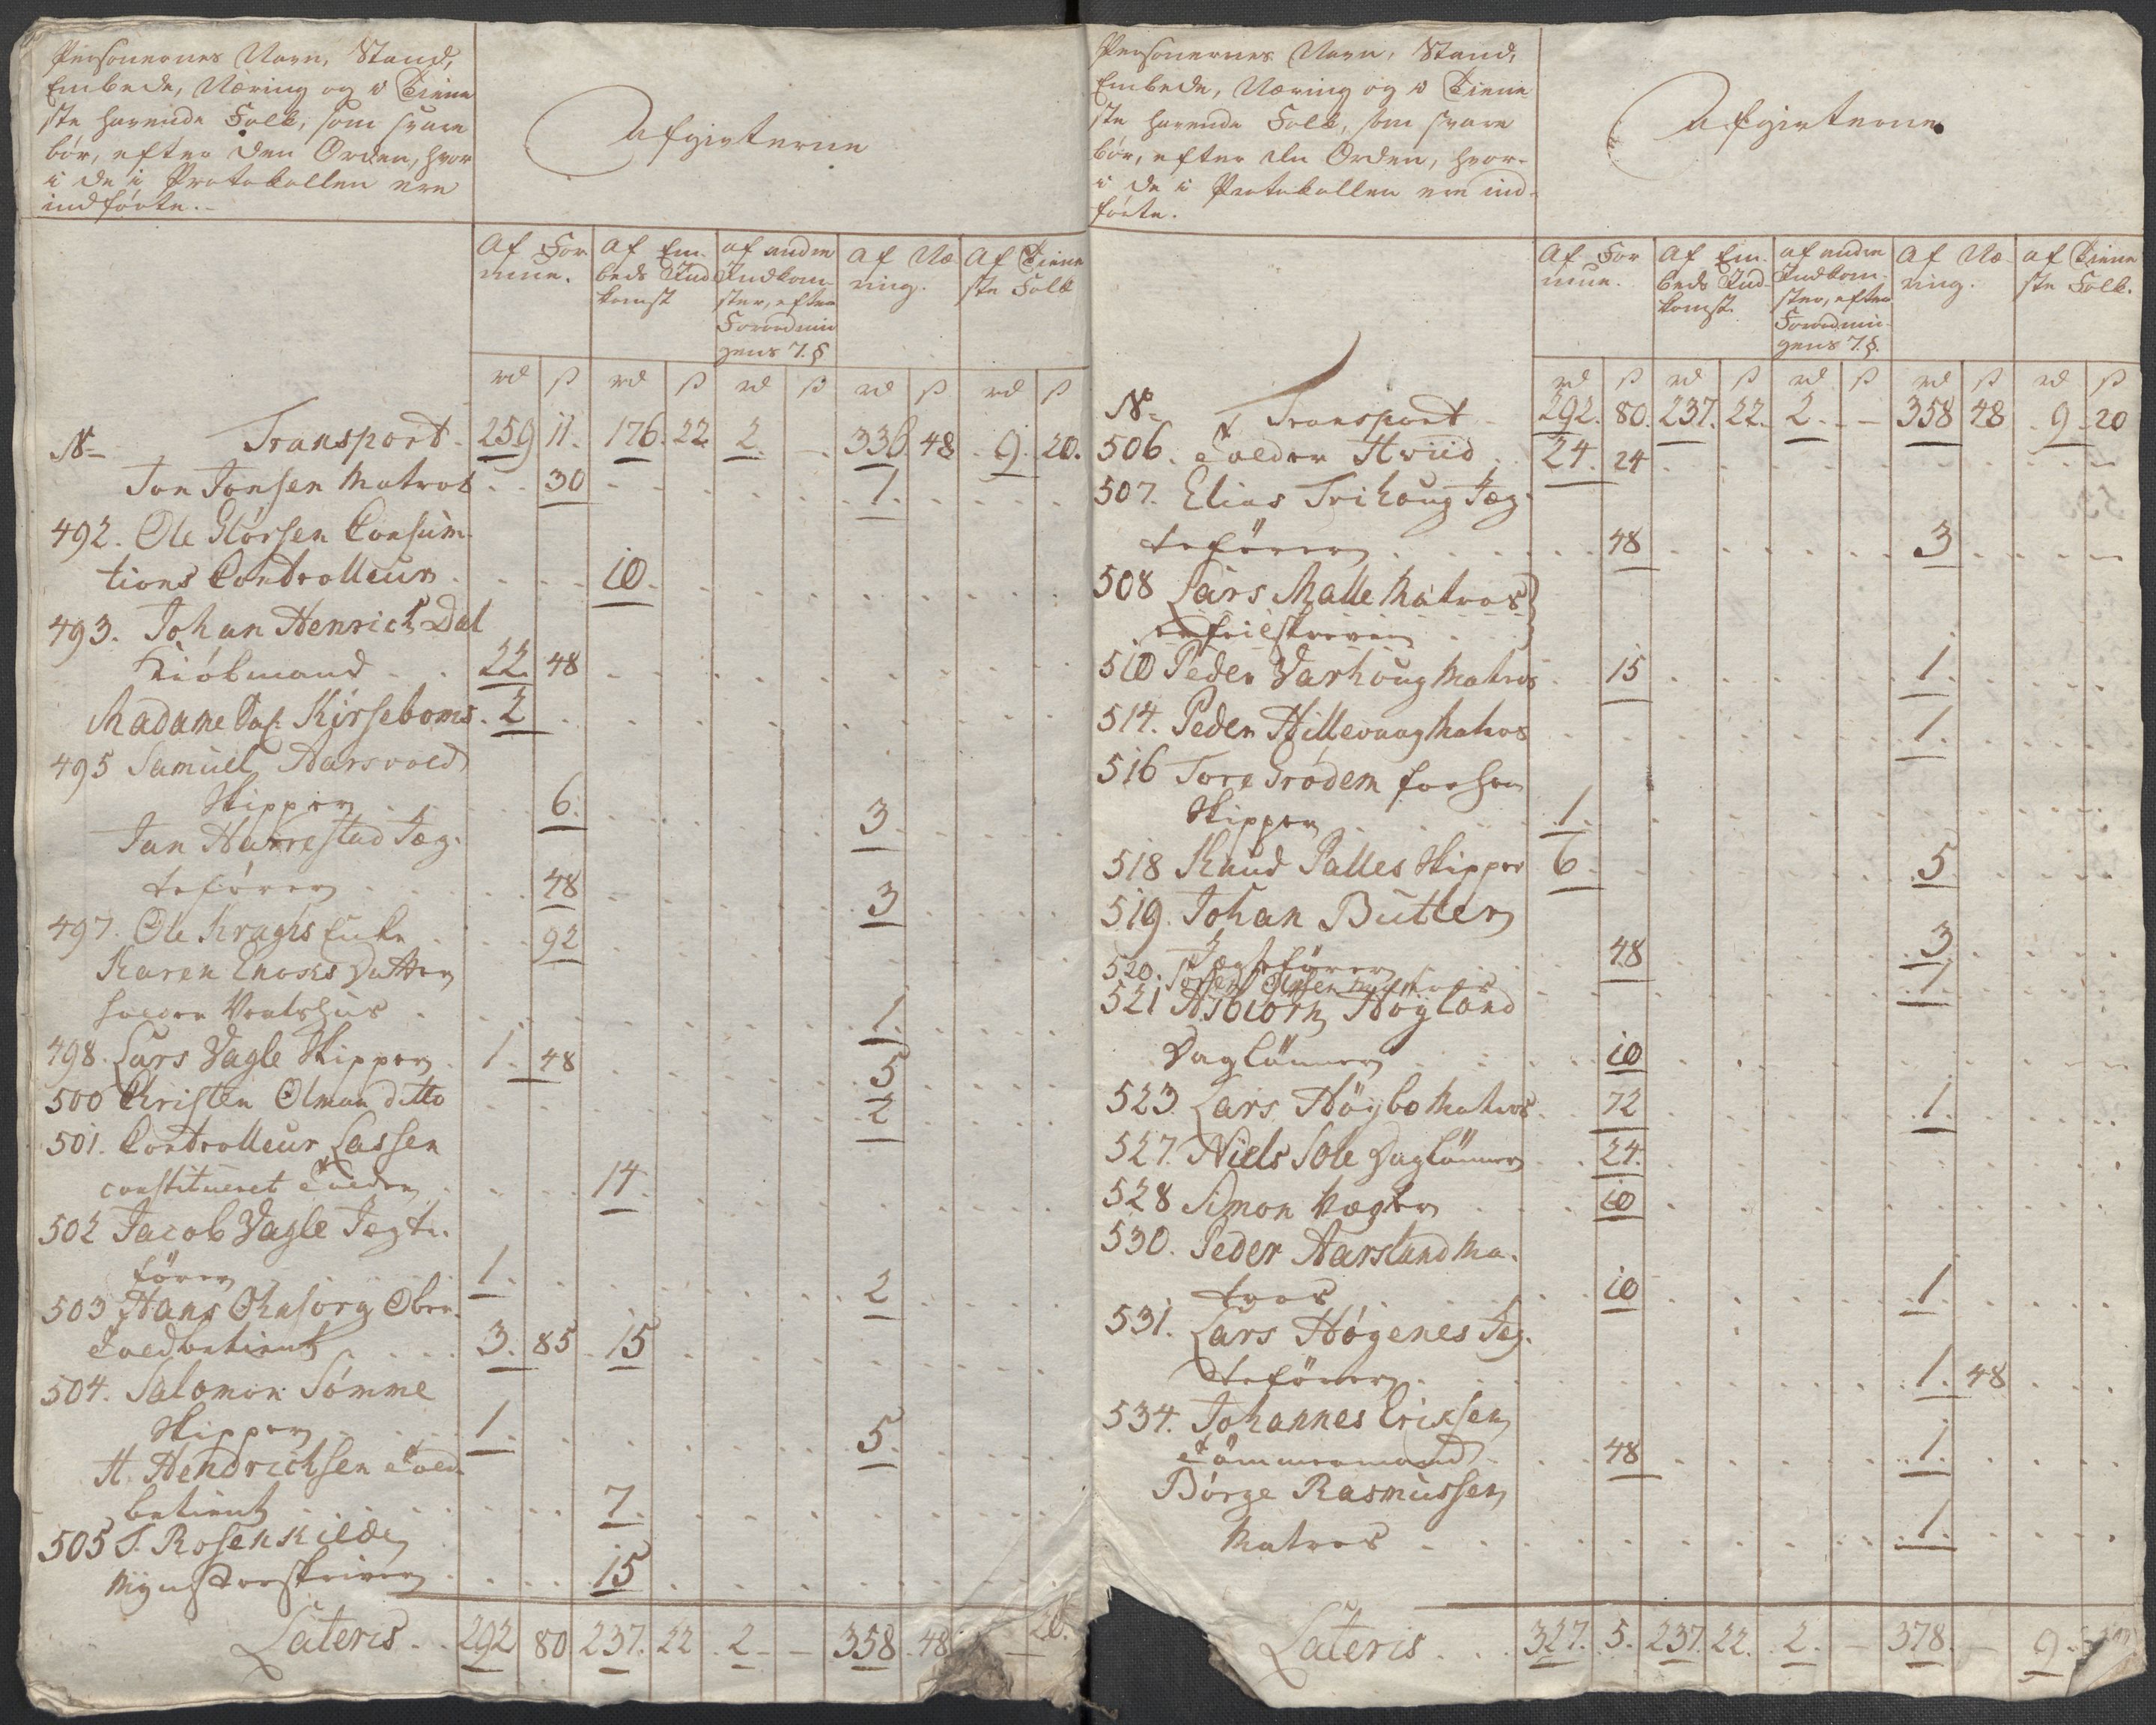 Personernes Navn, Stand,
Embede, Næring og i Tiene
ste havende Folk, som svare
bör, efter den Orden, hvor
i de i Protokollen ere
indförte.
Afgivterne
Af For
mue.
Af Em-
beds Ind
komst
af andre
Indkom-
ster, efter
Forordnin
gens 7. §
Af Næ
ring.
Af Tiene
ste Folk
rd ß rd ß rd ß rd ß rd ß
No Transport 259 11. 176. 22 2. - 336 48 9. 20.
Jon Jonsen Matros 30 1.
492. Ole Glörsen Consum-
tions Controlleur 10.
493. Johan Henrich Dal
Kiöbmand 22. 48
Madame Sal. Kirseboms 2
495 Samuel Aarsvold
Skipper 6. 3
Jan Harrestad Jæg-
teförer 48 3
497. Ole Kraghs Enke 92
Karen Enoks Datter
holder Vertshus 1.
498. Lars Vagle Skipper 1. 48 5
500 Christen Olman ditto 2
501. Controlleur Lassen
constitueret Tolder 14.
502 Jacob Vagle Jægte-
förer 1. 2
503 Hans Ohnsorg Over-
Toldbetient 3. 85 15
504. Salomon Sömme
Skipper 1. 5.
H. Hendrichsen Told-
betient 7.
505 T. Rosenkilde
Mynsterskriver 15
Lateris 292 80 237. 22 2 - 358 48 20.
Personernes Navn, Stand,
Embede, Næring og i Tiene-
ste havende Folk, som svare
bör, efter den Orden, hvor-
i de i Protokollen ere ind-
förte.
Afgivterne
Af For
mue.
Af Em-
beds Ind-
komst
af andre
Indkom-
ster, efter
Forordnin-
gens 7. §.
Af Næ-
ring.
af Tiene
ste Folk.
rd ß rd ß rd ß rd ß rd ß
No Transport 292. 80. 237. 22. 2. - 358 48 9. 20
506. Tolder Hviid 24. 24
507. Elias Trihoug Jæg-
teförer 48 3
508 Lars Malle Matros
er feilskreven
510 Peder Varhoug Matros 15 1.
514. Peder Hillevaag Matros 1.
516 Tore Grödem forhen
Skipper 1.
518 Knud Palles Skipper 6. 5
519. Johan Butler
Jægteförer 48 3
520. Olsen Matros 1.
521 Asbiorn Höyland
Daglönner 10
523. Lars Höybo Matros 72 1.
527. Niels Sole Daglönner 24.
528 Simon Vægter 10
530. Peder Aarsland Ma-
tros 10 1.
531. Lars Högenes Jæg-
teförer 1. 48
534. Johannes Eriksen
Tömmermand 48 1.
Börge Rasmussen
Matros 1.
Lateris 327. 5. 237. 22. 2. - 378. - 9.